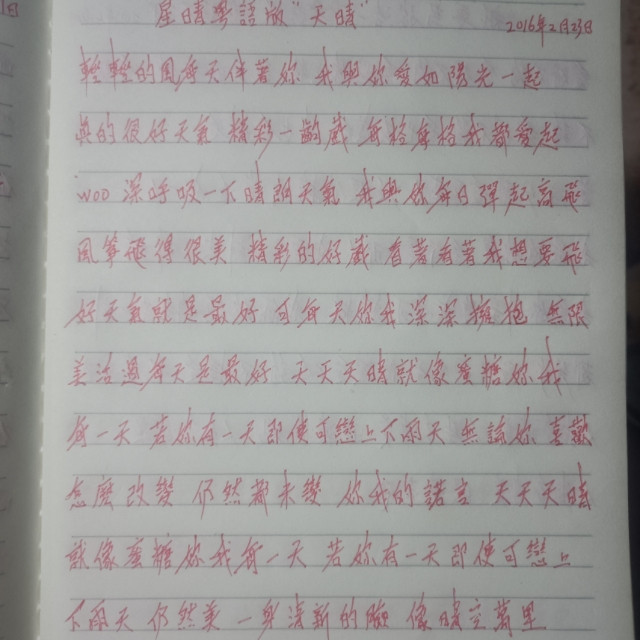 星晴粵語版"天晴"
2016年2月23日
輕輕的風每天伴著妳 我與你愛如陽光一起
真的很好天氣 精彩一齣戲 每格每格我都愛起
woo 深呼吸一下晴朗天氣 我與你每日彈起高飛
風箏飛得很美 精彩的好戲 看著看著我想要飛
好天氣就是最好 可每天你我深深擁抱 無限
美活過每天是最好 天天天晴就像蜜糖妳我
每一天 若妳有一天即使可戀上下雨天 無論妳 喜歡
怎麼改變 仍然都未變 你我的諾言 天天天晴
就像蜜糖妳我每一天 若妳有一天即使可戀上
下雨天 仍然美 一身清新的臉 像晴空萬里